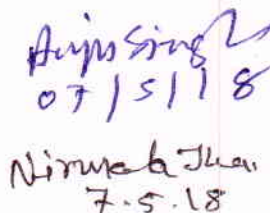 Anju Singh
07/5/18
Nirmala Jha
7.5.18